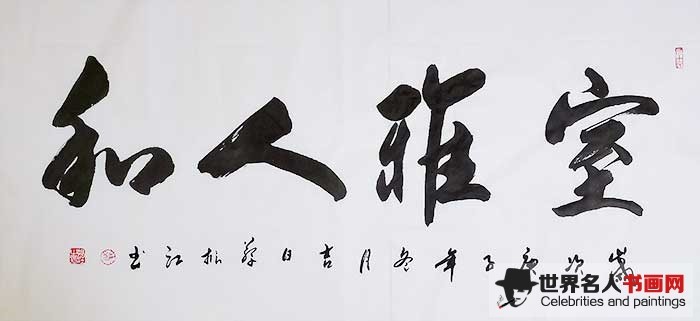 室雅人和
岁次庚子年冬月吉日江书
世界名人书画网
Celebrities and paintings